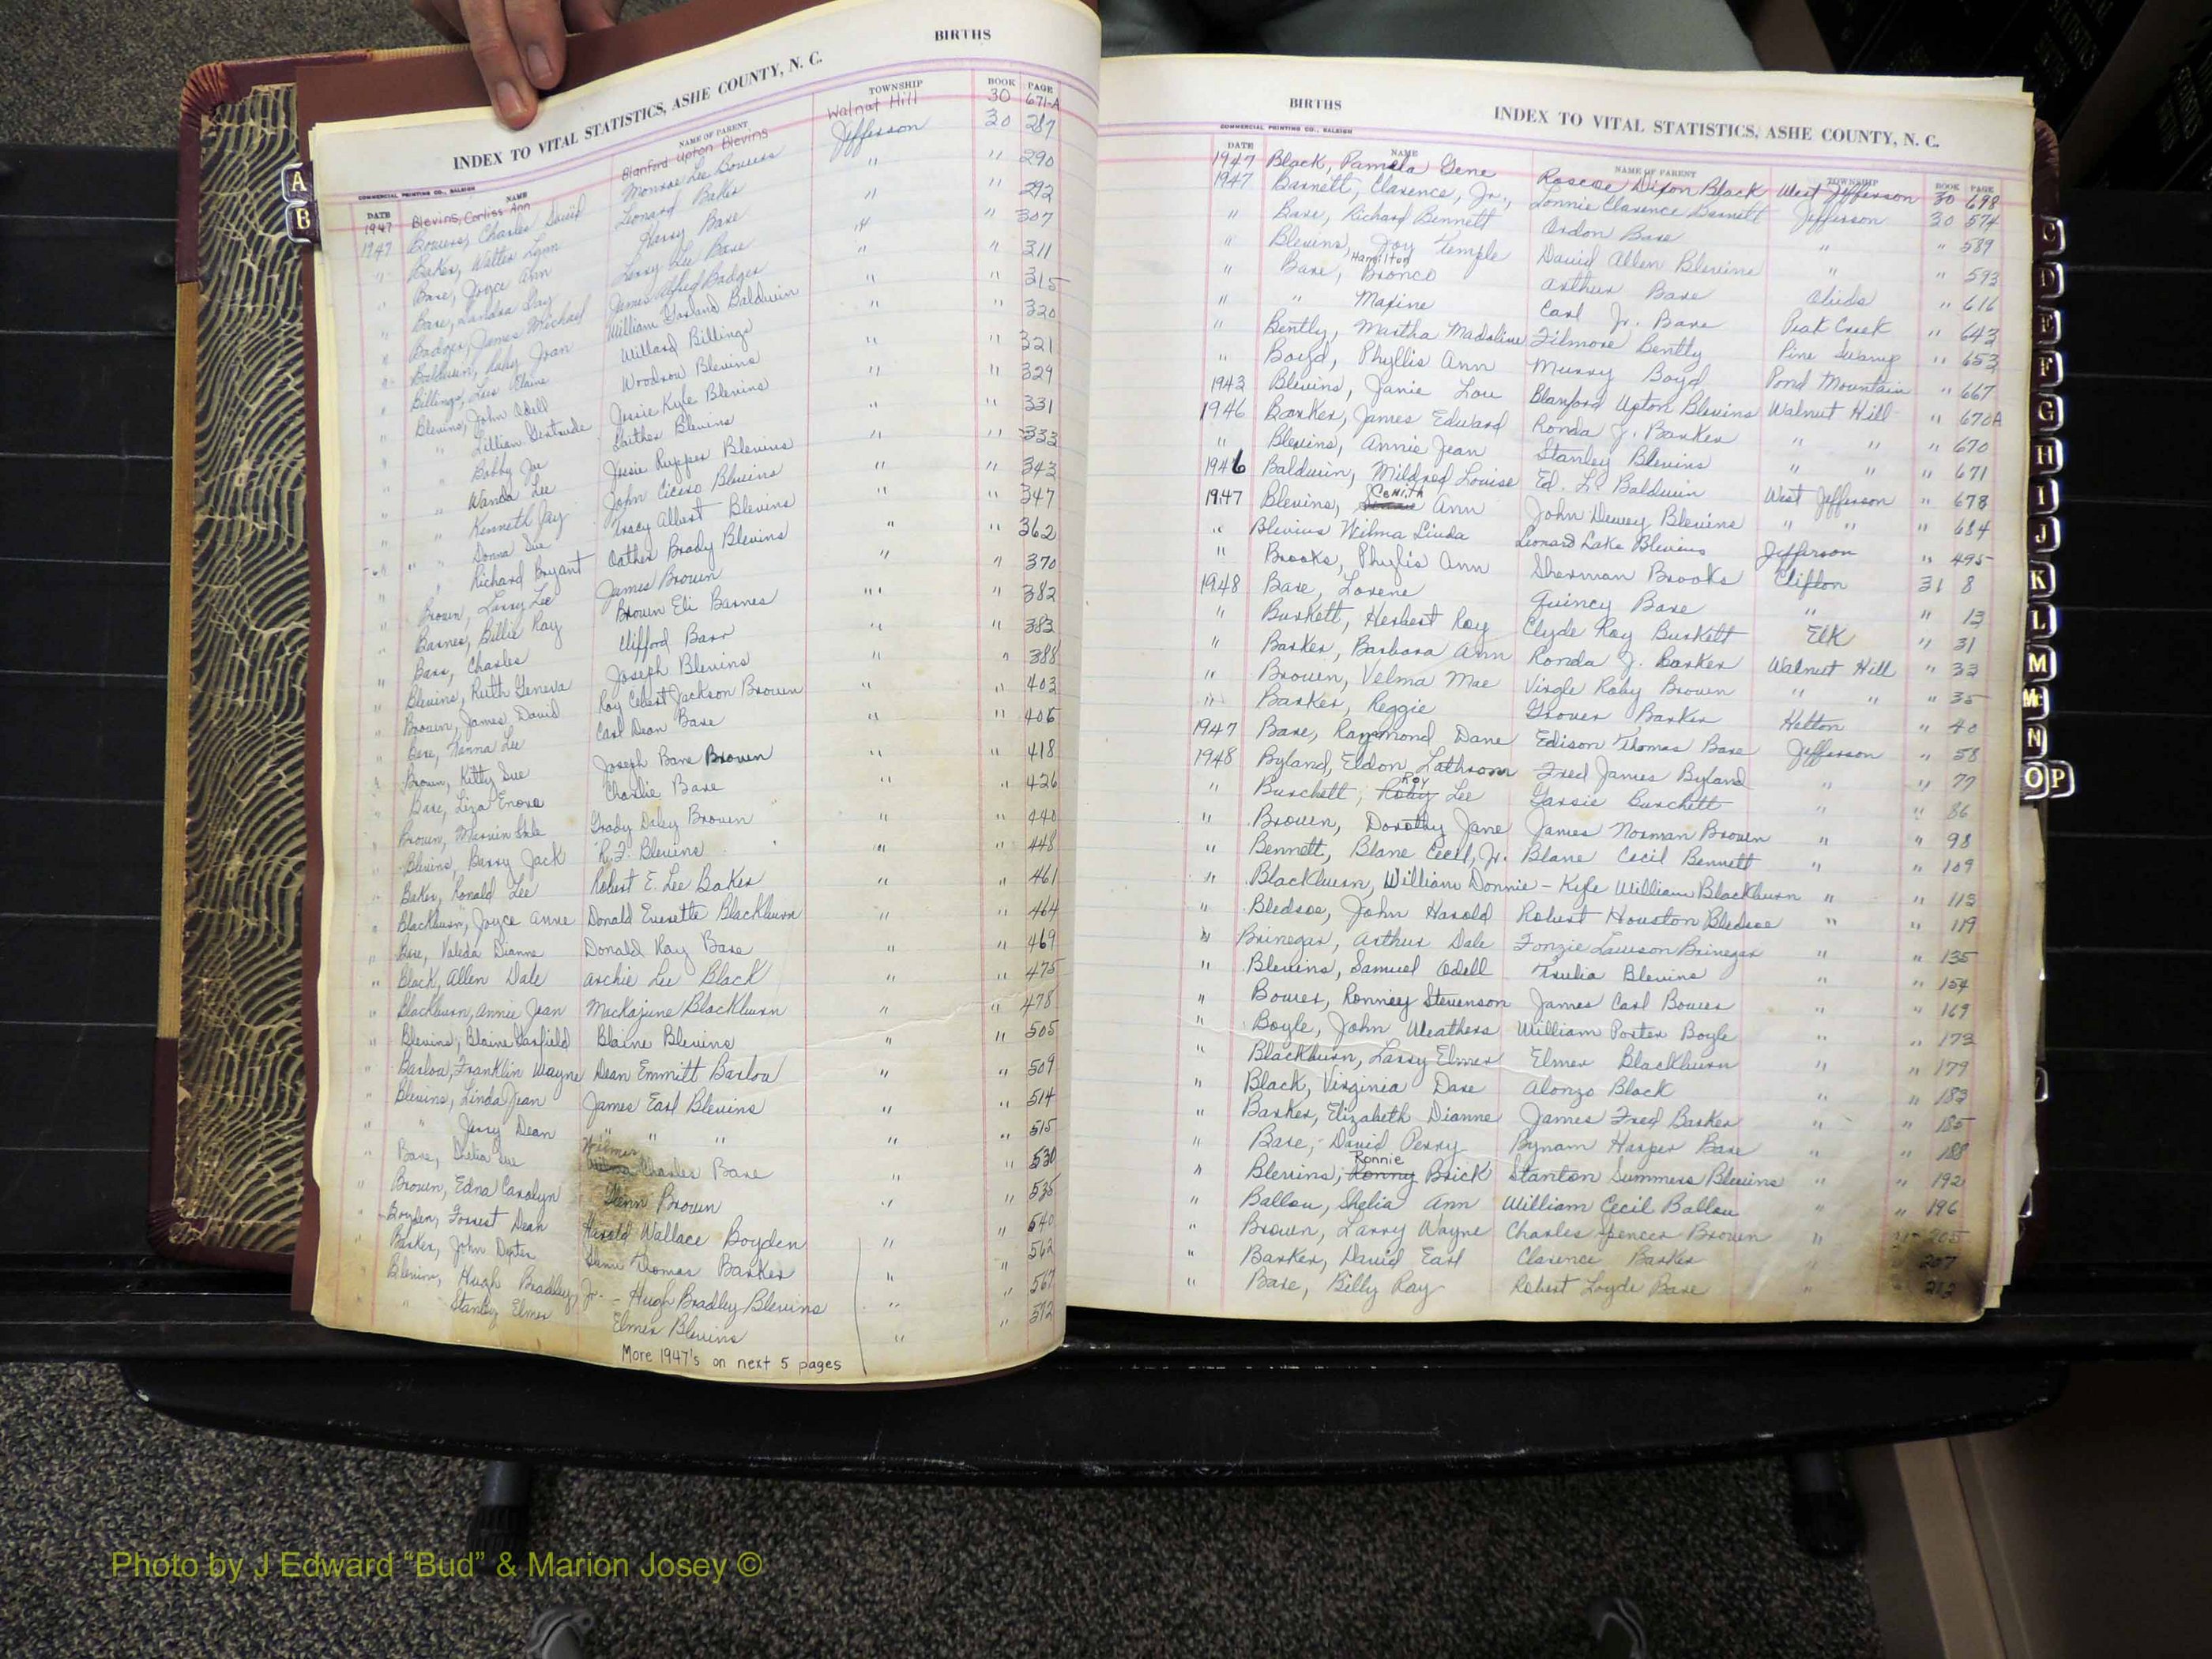 BIRTHS
INDEX TO VITAL STATISTICS, ASHE COUNTY, N. C.
COMMERCIAL PRINTING CO., RALEIGH
DATE NAME NAME OF PARENT TOWNSHIP BOOK PAGE
1947 Blevins, Corliss Ann Blanford Upton Blevins Walnut Hill 30 671-A
1947 Bowers, Charles David Monroe Lee Bowers Jefferson 30 287
" Baker, Walter Lynn Leonard Baker " " 290
" Bare, Joyce Ann Harry Bare " " 292
" Bare, Sandra Gay Larry Lee Bare " " 307
" Badger, James Michael James Alfred Badger " " 311
" Baldwin, Ruby Joan William Garland Baldwin " " 315
" Billings, Lois Elaine Willard Billings " 320
" Blevins, John Odell Woodrow Blevins " " 321
" " Lillian Gertrude Jessie Kyle Blevins " " 329
" " Bobby Joe Luther Blevins " " 331
" " Wanda Lee Jessie Rupper Blevins " " 333
" " Kenneth Jay John Cicero Blevins " " 343
" " Donna Sue Tracy Albert Blevins " " 347
" " Richard Bryant Oather Brady Blevins " " 362
" Brown, Larry Lee James Brown " " 370
" Barnes, Billie Ray Brown Eli Barnes " " 382
" Barr, Charles Clifford Barr " " 383
" Blevins, Ruth Geneva Joseph Blevins " " 388
" Brown, James David Roy Celest Jackson Brown " " 403
" Bare, Nanna Lee Carl Dean Bare " " 406
" Brown, Kitty Sue Joseph Bare Brown " " 418
" Bare, Liza Enora Charlie Bare " " 426
" Brown, Marvin Dale Grady Daley Brown " " 440
" Blevins, Barry Jack R. F. Blevins " " 448
" Baker, Ronald Lee Robert E. Lee Baker " " 461
" Blackburn, Joyce Anne Donald Everette Blackburn " " 464
" Bare, Valeda Dianne Donald Ray Bare " " 469
" Black, Allen Dale Archie Lee Black " " 475
" Blackburn, Annie Jean Mackajune Blackburn " " 478
" Blevins, Blaine Garfield Blaine Blevins " " 505
" Barlow, Franklin Wayne Dean Emmitt Barlow " " 509
" Blevins, Linda Jean James Earl Blevins " " 514
" " Jerry Dean " " " " " 515
" Bare, Shelia Sue Wilmer Charles Bare " " 530
" Brown, Edna Carolyn Glenn Brown " " 535
" Boyden, Forrest Dean Harold Wallace Boyden " " 540
" Barker, John Dexter Thomas Barker " " 562
" Blevins, Hugh Bradley, Jr. - Hugh Bradley Blevins " " 567
" " Stanley Elmer Elmer Blevins " " 572
More 1947's on next 5 pages
A
B
BIRTHS
INDEX TO VITAL STATISTICS, ASHE COUNTY, N. C.
COMMERCIAL PRINTING CO., RALEIGH
DATE NAME NAME OF PARENT TOWNSHIP BOOK PAGE
1947 Black, Pamela Gene Roscoe Dixon Black West Jefferson 30 698
1947 Barnett, Clarence, Jr., Lonnie Clarence Barnett Jefferson 30 574
" Bare, Richard Bennett Ordon Bare " " 589
" Blevins, Joy Temple David Allen Blevins " " 593
" Bare, Hamilton Bronco Arthur Bare Obids " 616
" " Maxine Carl Jr. Bare Peak Creek " 643
" Bently, Martha Madaline Filmore Bently Pine Swamp " 653
" Boyd, Phyllis Ann Murry Boyd Pond Mountain " 667
1943 Blevins, Janie Lou Blanford Upton Blevins Walnut Hill " 670A
1946 Barker, James Edward Ronda J. Barker " " " 670
" Blevins, Annie Jean Stanley Blevins " " " 671
1946 Baldwin, Mildred Louise Ed. L. Baldwin West Jefferson " 678
1947 Blevins, Cenith Ann John Dewey Blevins " " " 684
" Blevins Wilma Linda Leonard Lake Blevins Jefferson " 495
" Brooks, Phylis Ann Sherman Brooks Clifton 31 8
1948 Bare, Lorene Quincy Bare " " 13
" Burkett, Herbert Roy Clyde Roy Burkett Elk " 31
" Barker, Barbara Ann Ronda J. Barker Walnut Hill " 33
" Brown, Velma Mae Virgle Roby Brown " " " 35
" Barker, Reggie Grover Barker Helton " 40
1947 Bare, Raymond Dane Edison Thomas Bare Jefferson " 58
1948 Byland, Eldon Lathrom Fred James Byland " " 77
" Burchett, Roy Lee Garsie Burchett " " 86
" Brown, Dorothy Jane James Norman Brown " " 98
" Bennett, Blane Cecil, Jr. Blane Cecil Bennett " " 109
" Blackburn, William Donnie - Kyle William Blackburn " " 113
" Bledsoe, John Harold Robert Houston Bledsoe " " 119
" Brinegar, Arthur Dale Fonzie Lawson Brinegar " " 135
" Blevins, Samuel Odell Trulia Blevins " " 154
" Bower, Ronney Stevenson James Carl Bower " " 169
" Boyle, John Weathers William Porter Boyle " " 173
" Blackburn, Larry Elmer Elmer Blackburn " " 179
" Black, Virginia Dare Alonzo Black " " 183
" Barker, Elizabeth Dianne James Fred Barker " " 185
" Bare, David Perry Bynam Harper Bare " " 188
" Blevins, Ronnie Brick Stanton Summers Blevins " " 192
" Ballou, Shelia Ann William Cecil Ballou " " 196
" Brown, Larry Wayne Charles Spencer Brown " " 205
" Barker, David Earl Clarence Barker " 207
" Bare, Billy Ray Robert Loyde Bare " 212
C
D
E
F
G
H
I
J
K
L
M
Mc
N
O P
Photo by J Edward “Bud” & Marion Josey ©